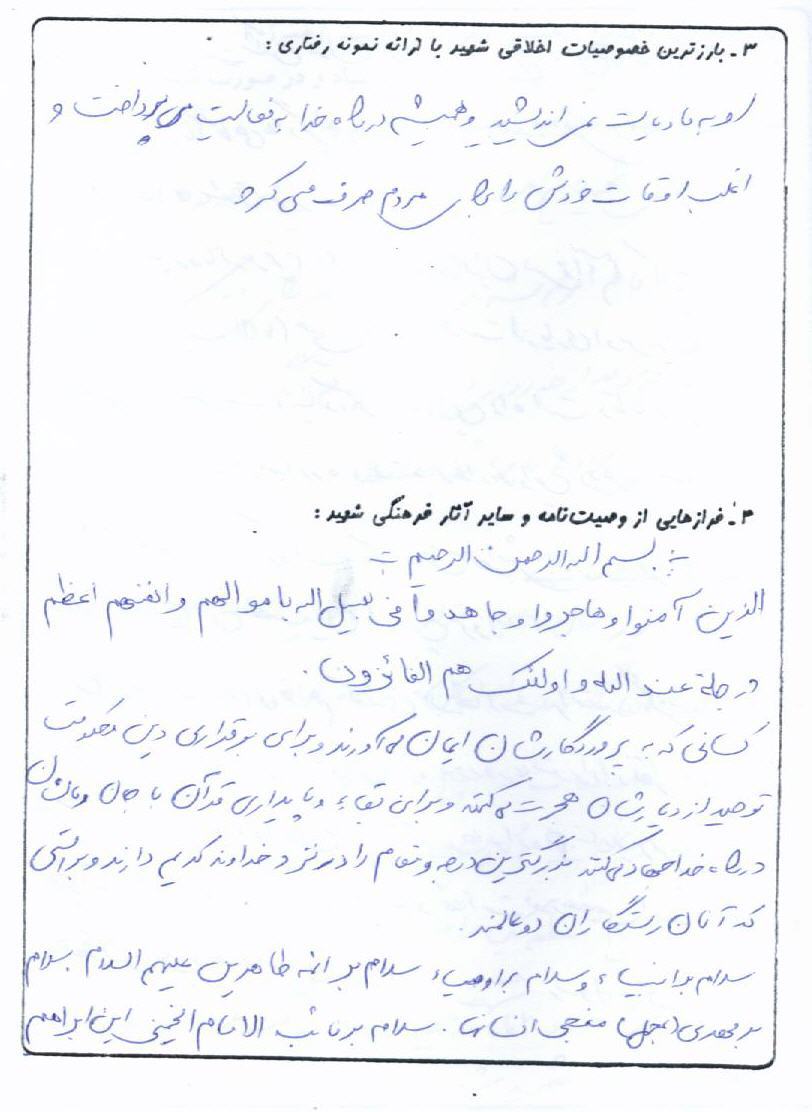 ۳ ـ بارزترین خصوصیات اخلاقی شهید با ارائه نمونه رفتاری :
او به مادیات نمی اندیشید و همیشه در راه خدا به فعالیت می پرداخت و
اغلب اوقات خودش را برای مردم صرف می کرد
۴ ـ فرازهایی از وصیت‌نامه و سایر آثار فرهنگی شهید :
بسم الله الرحمن الرحیم
الذین آمنوا و هاجروا و جاهدوا فی سبیل الله باموالهم و انفسهم اعظم
درجة عند الله و اولئک هم الفائزون .
کسانی که به پروردگارشان ایمان می آورند و برای برقراری دین حکومت
توحید از دیارشان هجرت می کنند و برای بقاء و پایداری قرآن با جان و مالشان
در راه خدا جهاد می کنند بزرگترین درجه و مقام را در نزد خداوند کریم دارند و براستی
که آنان رستگاران دو عالمند .
سلام بر انبیاء و سلام بر اوصیاء سلام بر ائمه طاهرین علیهم السلام سلام
بر مهدی (عج) منجی انسانها . سلام بر نائب الامام الخمینی این ابراهیم